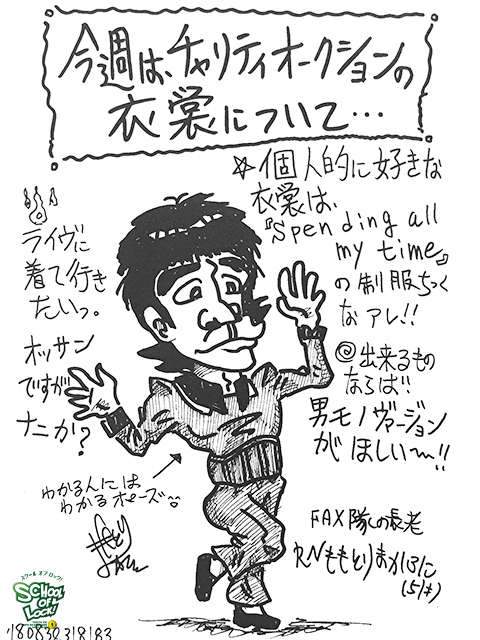 今週は、チャリティオークションの
衣裳について…
☆個人的に好きな
衣裳は、
『Spending all
my time』
の制服ちっく
なアレ!!
ライヴに
着て行き
たいっ。
オッサン
ですが
ナニか?
@出来るもの
ならば!!
男モノヴァージョン
がほしい〜!!
わかる人には
わかるポーズ
FAX隊の長老
RNももとりまかに
(51才)
スクール オブ ロック!
SCHOOL
OF
LOCK!